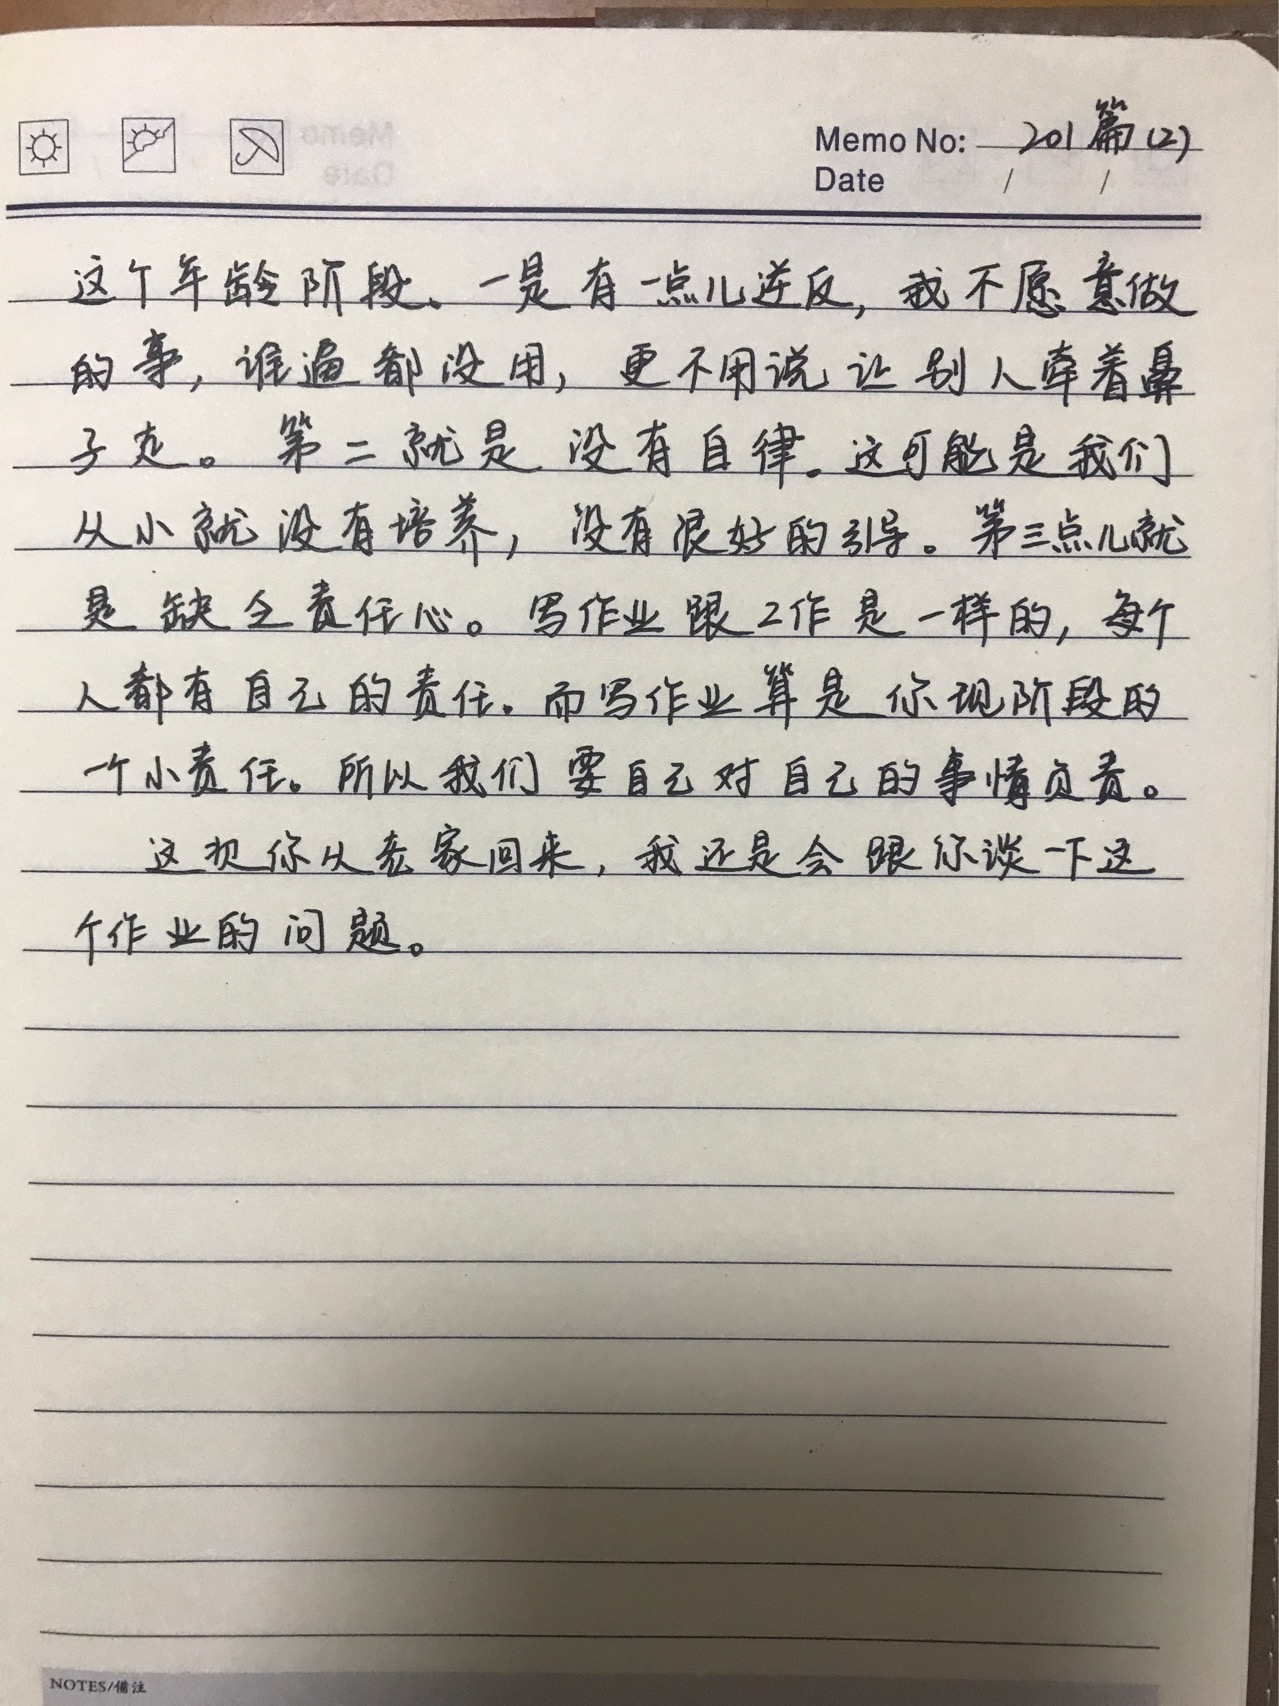 Memo No: 201篇(2)
Date / /
这个年龄阶段、一是有一点儿逆反，我不愿意做
的事，谁逼都没用，更不用说让别人牵着鼻
子走。第二就是没有自律。这可能是我们
从小就没有培养，没有很好的引导。第三点儿就
是缺乏责任心。写作业跟工作是一样的，每个
人都有自己的责任。而写作业算是你现阶段的
一个小责任。所以我们要自己对自己的事情负责。
这次你从老家回来，我还是会跟你谈一下这
个作业的问题。
NOTES/備注